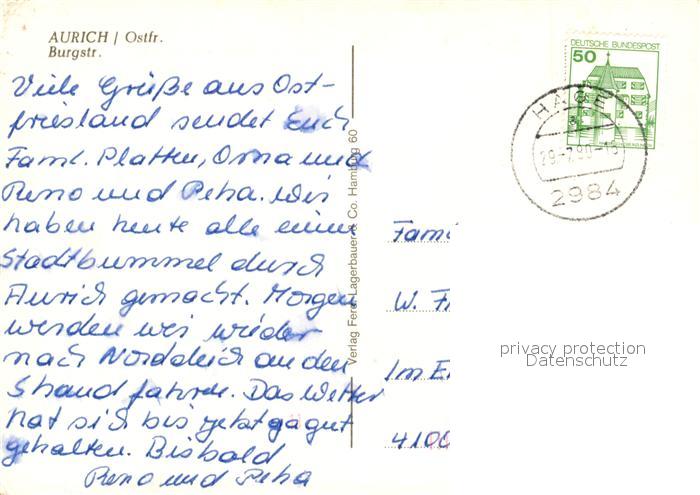 AURICH / Ostfr.
Burgstr.
Viele Grüße aus Ost-
friesland sendet Euch
Faml. Platten, Oma und
Reno und Peha. Wir
haben heute alle einen
Stadtbummel durch
Aurich gemacht. Morgen
werden wir wieder
nach Norddeich an den
Strand fahren. Das Wetter
hat sich bis jetzt ja gut
gehalten. Bisbald
Reno und Peha
Verlag Ferd. Lagerbauer & Co. Hamburg 60
DEUTSCHE BUNDESPOST
50
HAGE
29.-7.80-18
2984
Fami
W. Fr
Im E
4100
privacy protection
Datenschutz